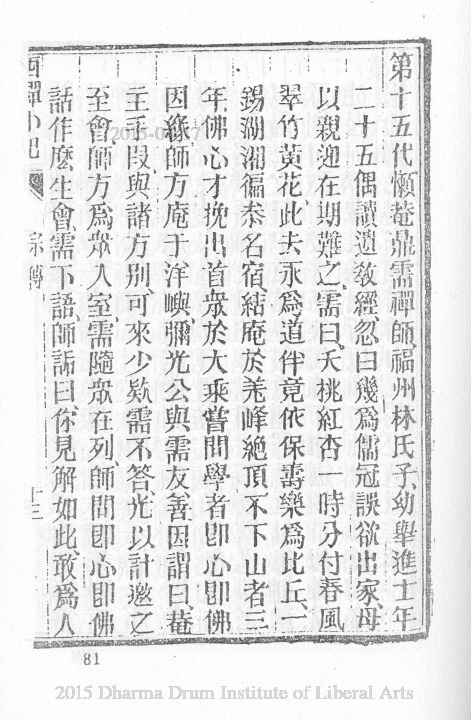 第十五代懶菴鼎需禪師福州林氏子、幼舉進士、年
二十五偶讀遺教經忽曰幾爲儒冠誤欲出家、母
以親迎在期難之、需曰、夭桃紅杏一時分付春風
翠竹黃花、此去永爲道伴竟依保壽樂爲比丘、一
錫湖湘徧叅名宿、結庵於羌峰絶頂不下山者三
年、佛心才挽出首衆於大乘嘗問學者卽心卽佛
因緣、師方庵于洋嶼、彌光公與需友善因謂曰、菴
主手段、與諸方別、可來少欵需不答、光以計邀之
至會、師方爲衆入室、需隨衆在列、師問卽心卽佛
話作麽生會、需下語、師詬曰、你見解如此、敢爲人
西禪小記 宗傳 十三
81
2015 Dharma Drum Institute of Liberal Arts